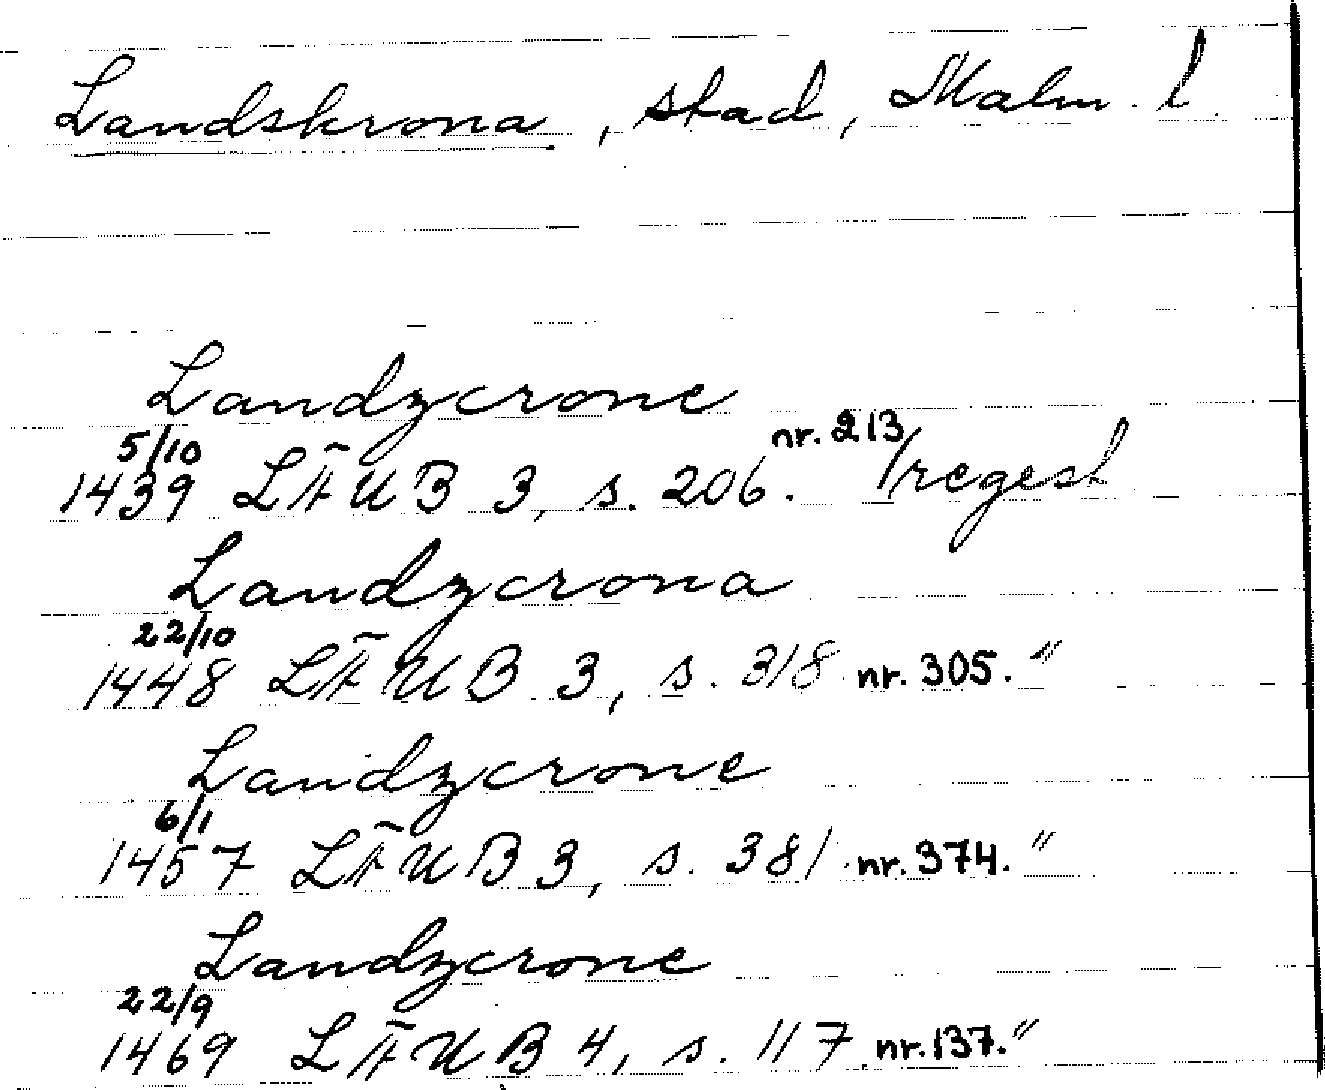 Landskrona, stad, Malm. l
Landzcrone
5/10
nr. 213
1439 LÄUB 3, s. 206. /regest
Landzcrona
22/10
1448 LÄUB 3, s. 318 nr. 305. "
Landzcrone
6/1
1457 LÄUB 3, s. 381 nr. 374. "
Landzcrone
22/9
1469 LÄUB 4, s. 117 nr. 137. "